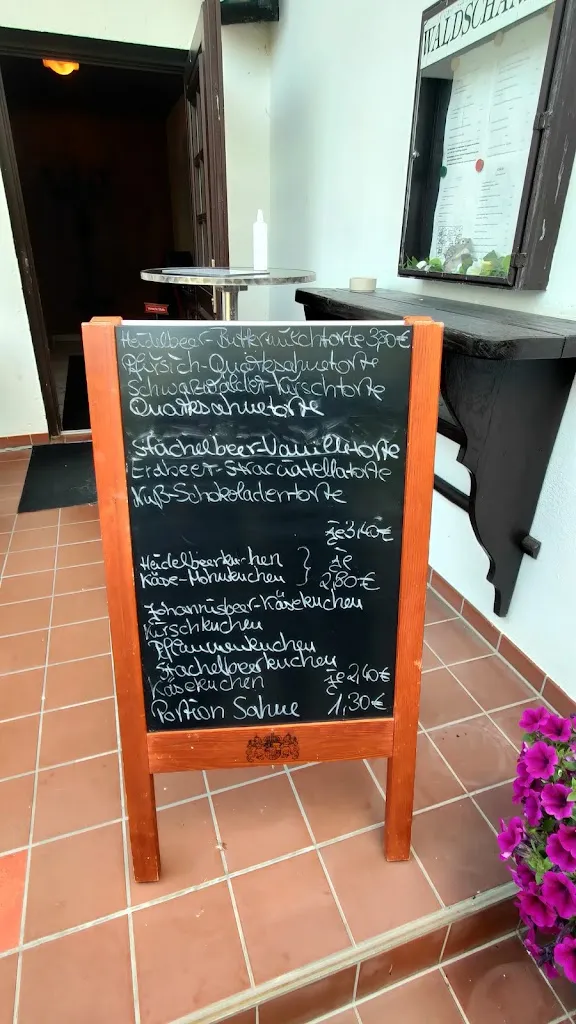 WALDSCHÄN
Heidelbeer-Buttermilchtorte 3,80€
Pfirsich-Quarksahnetorte
Schwarzwälder-Kirschtorte
Quarksahnetorte
Stachelbeer-Vanilletorte
Erdbeer-Stracciatellatorte
Nuß-Schokoladentorte
je 3,40€
Heidelbeerkuchen } je
Käse-Mohnkuchen } 2,80€
Johannisbeer-Käsekuchen
Kirschkuchen
Pflaumenkuchen
Stachelbeerkuchen
Käsekuchen je 2,40€
Portion Sahne 1,30€